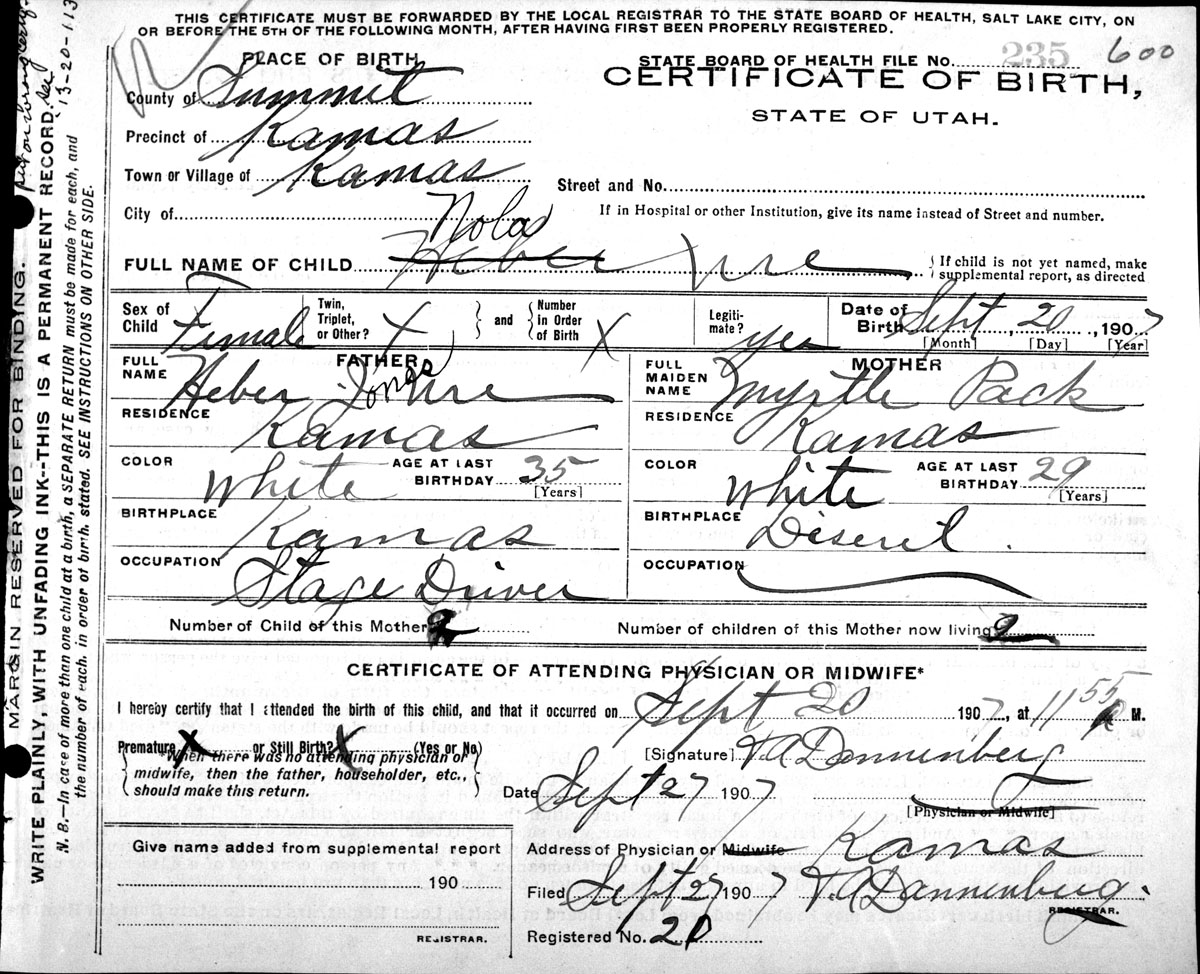 THIS CERTIFICATE MUST BE FORWARDED BY THE LOCAL REGISTRAR TO THE STATE BOARD OF HEALTH, SALT LAKE CITY, ON
OR BEFORE THE 5TH OF THE FOLLOWING MONTH, AFTER HAVING FIRST BEEN PROPERLY REGISTERED.
PLACE OF BIRTH
STATE BOARD OF HEALTH FILE No. 235 600
CERTIFICATE OF BIRTH,
STATE OF UTAH.
County of Summit
Precinct of Kamas
Town or Village of Kamas
Street and No.
City of
If in Hospital or other Institution, give its name instead of Street and number.
Nola
FULL NAME OF CHILD Heber
If child is not yet named, make
supplemental report, as directed
Sex of Child Female
Twin, Triplet, or Other? X
and
Number in Order of Birth X
Legiti-mate? yes
Date of Birth Sept 20, 1907
[Month] [Day] [Year]
FATHER
FULL NAME Heber Jonas
RESIDENCE Kamas
COLOR White
AGE AT LAST BIRTHDAY 35
[Years]
BIRTHPLACE Kamas
OCCUPATION Stage Driver
MOTHER
FULL MAIDEN NAME Myrtle Pack
RESIDENCE Kamas
COLOR White
AGE AT LAST BIRTHDAY 29
[Years]
BIRTHPLACE Deseret.
OCCUPATION
Number of Child of this Mother 2
Number of children of this Mother now living 2
CERTIFICATE OF ATTENDING PHYSICIAN OR MIDWIFE*
I hereby certify that I attended the birth of this child, and that it occurred on Sept 20 1907, at 11 55 M.
Premature X or Still Birth? X (Yes or No)
[Signature] T A Dannenberg
When there was no attending physician or
midwife, then the father, householder, etc.,
should make this return.
Date Sept 27 1907
[Physician or Midwife]
Give name added from supplemental report
190
REGISTRAR.
Address of Physician or Midwife Kamas
Filed Sept 27 1907 T. A. Dannenberg.
REGISTRAR.
Registered No. 21
MARGIN RESERVED FOR BINDING.
WRITE PLAINLY, WITH UNFADING INK--THIS IS A PERMANENT RECORD.
N. B.—In case of more than one child at a birth, a SEPARATE RETURN must be made for each, and
the number of each, in order of birth, stated. SEE INSTRUCTIONS ON OTHER SIDE.